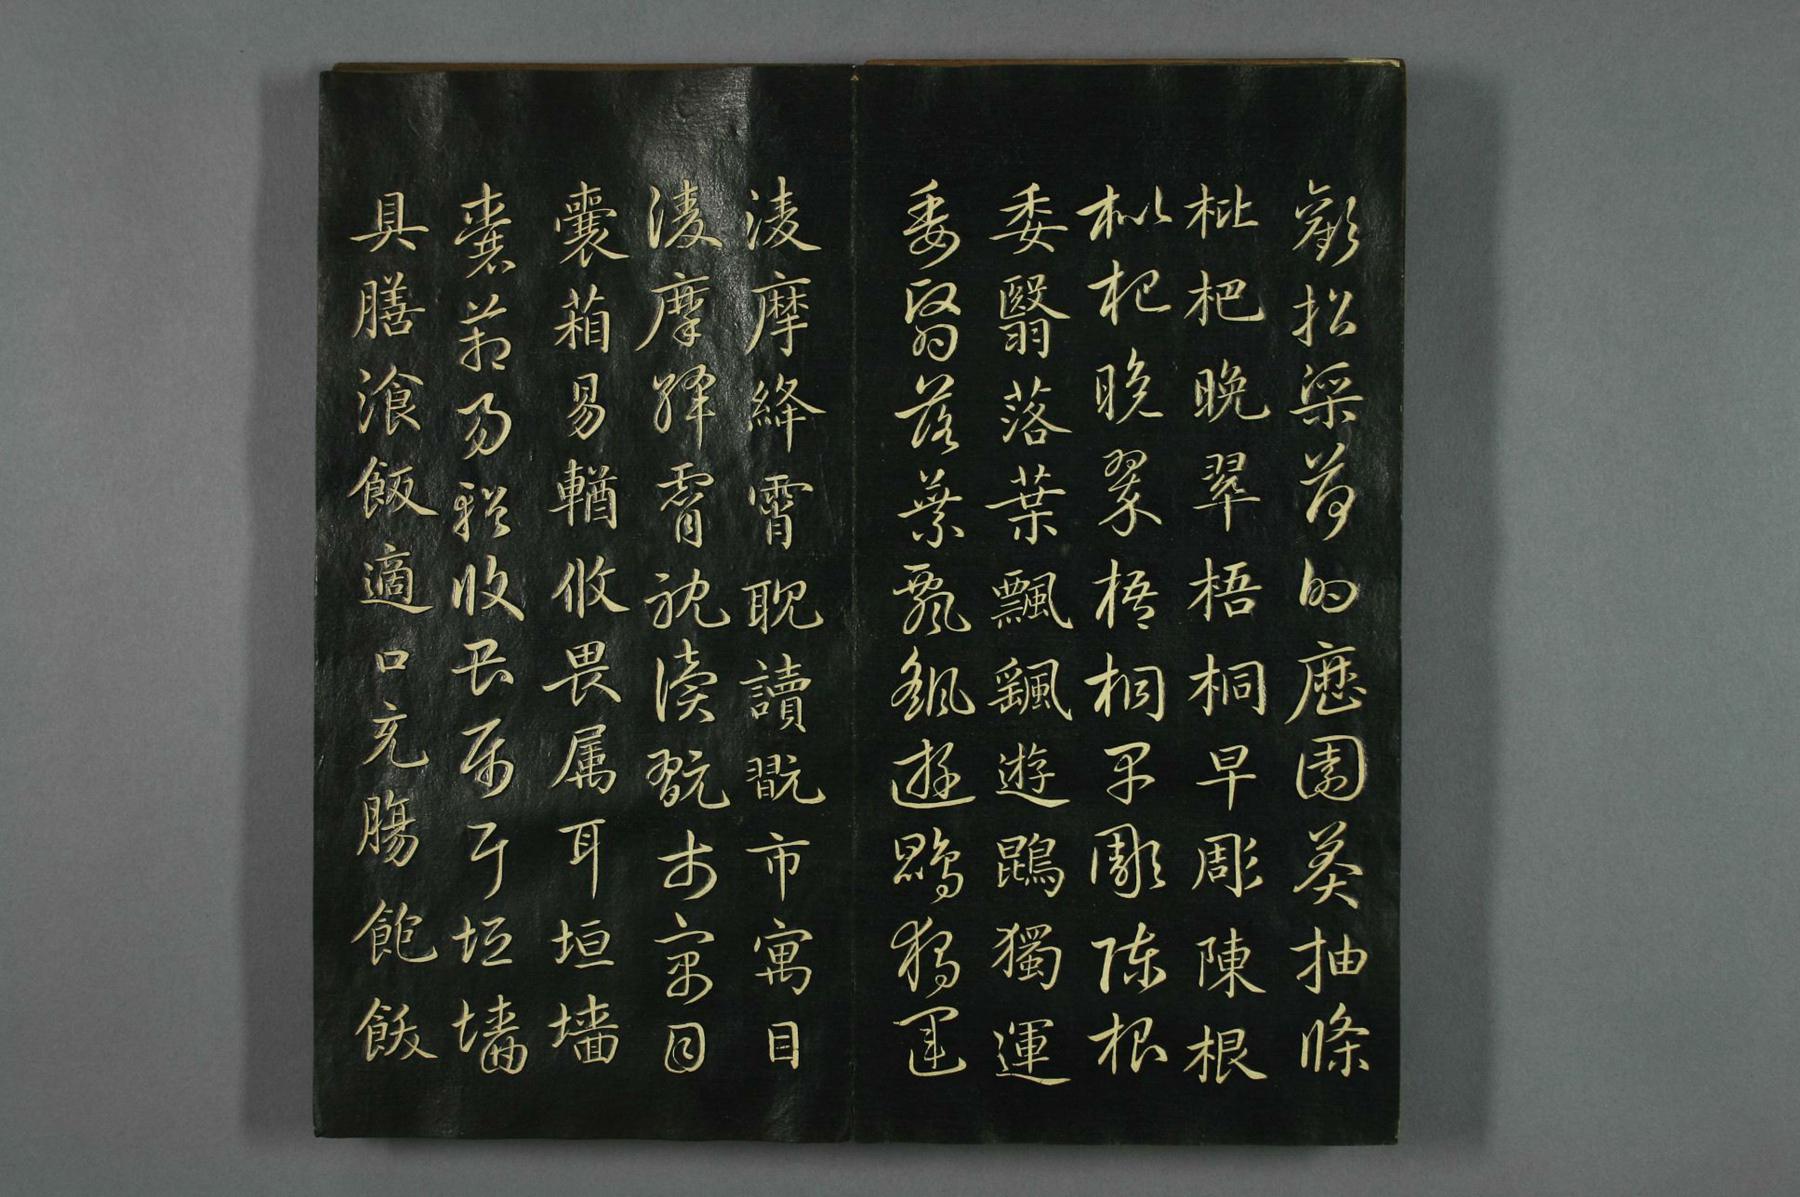 歡招渠荷的歷園莽抽條
枇杷晚翠梧桐早彫陳根
枇杷晚翠梧桐早彫陳根
委翳落葉飄颻遊鵾獨運
委翳落葉飄颻遊鵾獨運
淩摩絳霄耽讀翫市寓目
淩摩絳霄耽讀翫市寓目
囊葙易輶攸畏属耳垣墻
囊葙易輶攸畏属耳垣墻
具膳湌飯適口充腸飽飫